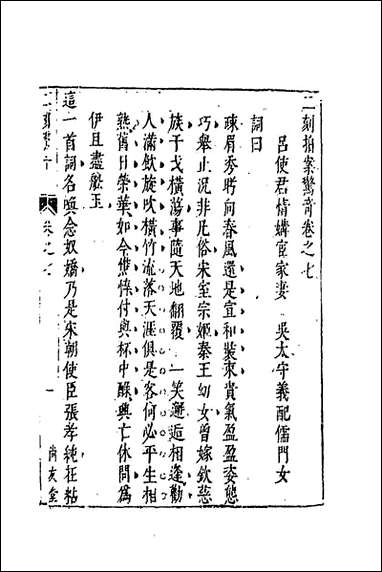 二刻拍案驚奇卷之七
呂使君情媾宦家妻　吳太守義配儒門女
詞曰
疎眉秀盻向春風還是宣和裝束貴氣盈盈姿態
巧舉止況非凡俗宋室宗姬秦王幼女曾嫁欽慈
族干戈橫蕩事隨天地翻覆　一笑邂逅相逢勸
人滿飲旋吹橫竹流落天涯俱是客何必平生相
熟舊日榮華如今憔悴付與杯中醁興亡休問爲
伊且盡舩玉
這一首詞名喚念奴嬌乃是宋朝使臣張孝純在粘
卷之七
一
尚友堂